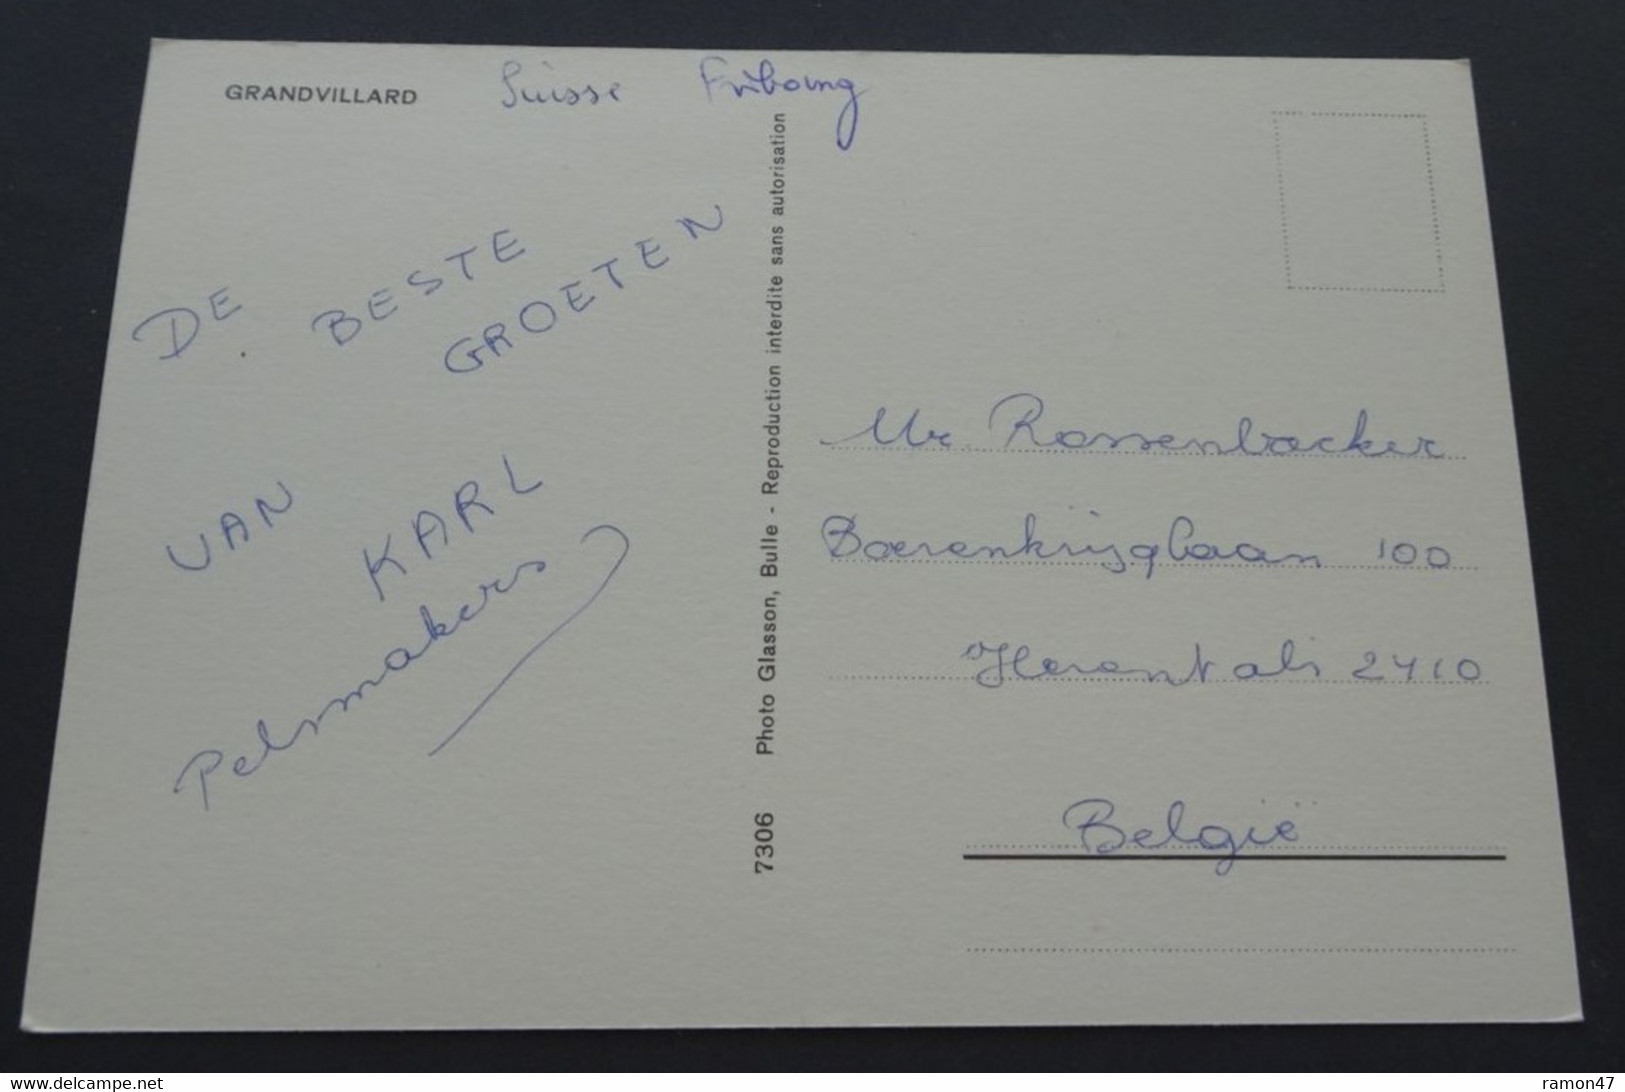 GRANDVILLARD
Suisse Fribourg
DE BESTE
GROETEN
VAN KARL
Pelsmakers
7306 Photo Glasson, Bulle - Reproduction interdite sans autorisation
Mr Rossenbacker
Boerenkrijglaan 100
Herentals 2410
België
delcampe.net
ramon47